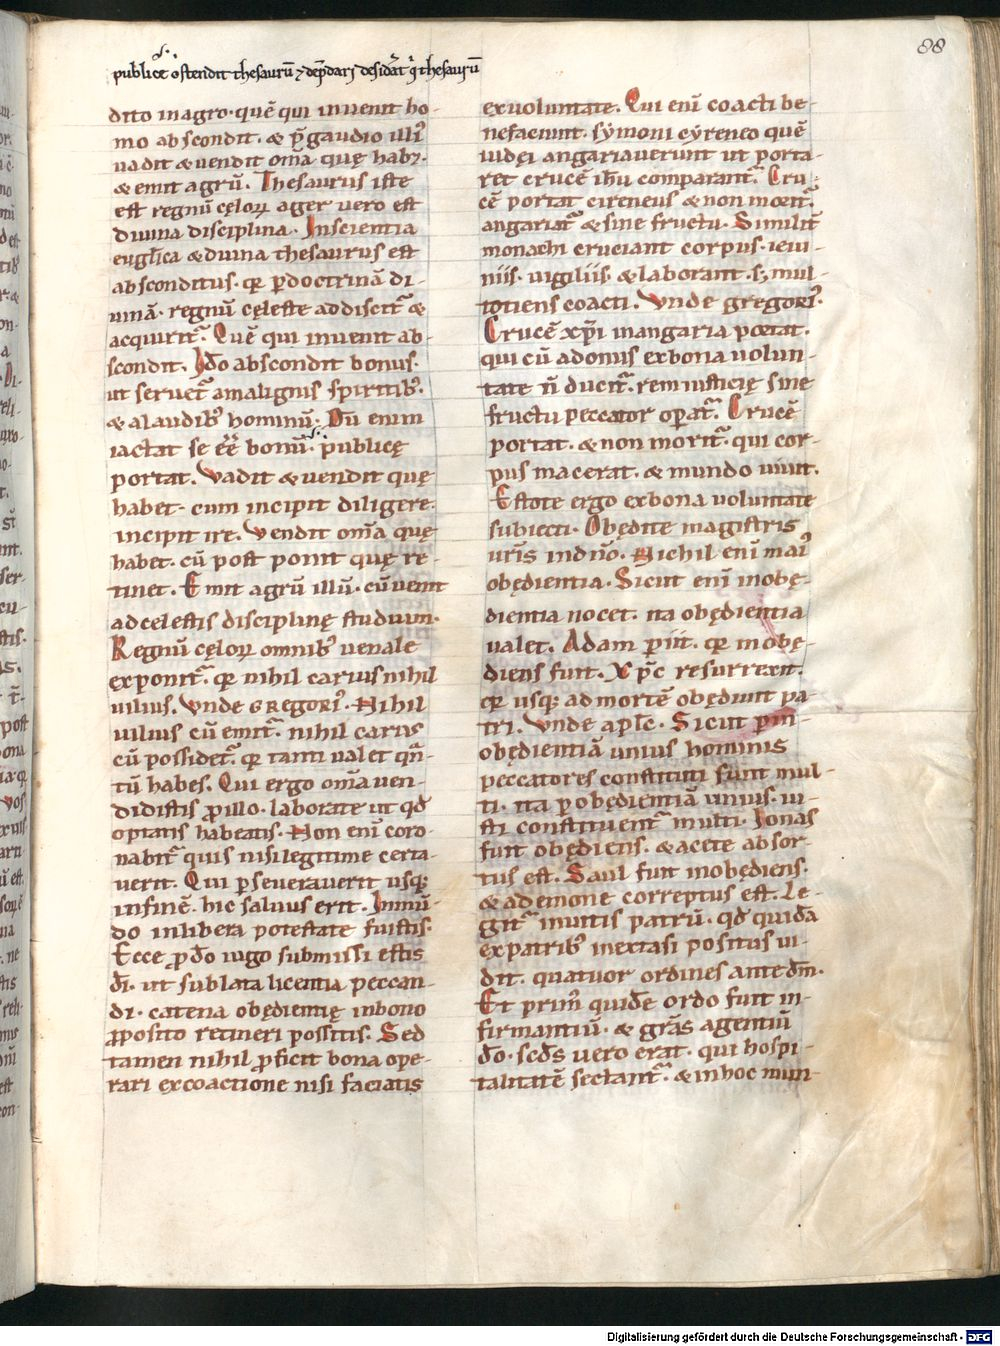 88
publicę ostendit thesaurū ⁊ dep̄dari desidat̄ q̄ thesaurū
dito in agro· quē qui inuenit ho-
mo abscondit. & p̄ gaudio illiꝰ
uadit & uendit om̄a quę habꝫ.
& emit agrū. Thesaurus iste
est regnū cęloꝝ ager uero est
diuina disciplina. In scientia
eugl̄ica & diuina thesaurus est
absconditus. qꝛ ꝑ doctrinā di-
uinā. regnū cęleste addiscit̄ &
acquirit̄. Quē qui inuenit ab-
scondit. Ido abscondit bonus.
ut seruet̄ a malignis spiritibꝰ.
& a laudibꝰ hominū. Dū enim
iactat se eē bonū. publicę
portat. Vadit & uendit quę
habet. cum incipit diligere.
incipit ire. Vendit om̄a quę
habet. cū post ponit quę re-
tinet. Emit agrū illū. cū uenit
ad celestis disciplinę studium.
Regnū cęloꝝ omnibꝰ uenale
exponit̄. qꝛ nihil carius nihil
uilius. Vnde GREGORꝰ. Nihil
uilius cū emit̄. nihil carius
cū possidet̄. qꝛ tanti ualet qn̄-
tū habes. Qui ergo om̄a uen-
didistis ꝓ illo. laborate ut qd̄
optatis habeatis. Non enī coro-
nabit̄ quis nisi legitime certa-
uerit. Qui ꝑseuerauerit usqꝫ
in finē. hic saluus erit. In mū-
do in libera potestate fuistis.
Ecce ꝓ do iugo submissi estis
di. ut sublata licentia peccan-
di. catena obędientię in bono
ꝓposito retineri possitis. Sed
tamen nihil ꝓficit bona ope-
rari ex coactione nisi faciatis
ex uoluntate. Qui enī coacti be-
nefaciunt. symoni cyreneo quē
iudęi angariauerunt ut porta-
ret crucē ihū comparant̄. Cru-
cē portat cireneus & non morit̄.
angariat̄ & sine fructu. Similit̄
monachi cruciant corpus. ieiu-
niis. uigiliis. & laborant. sꝫ mul-
totiens coacti. Vnde gregoriꝰ.
Crucē xp̄i in angaria portat.
qui cū ad onus ex bona uolun-
tate n̄ ducit̄. rem iusticię sine
fructu peccator oꝑat̄. Crucē
portat. & non morit̄. qui cor-
pus macerat. & mundo uiuit.
Estote ergo ex bona uoluntate
subiecti. Obędite magistris
uris in dno. Nichil enī maiꝰ
obędientia. Sicut enī inobę-
dientia nocet. ita obędientia
ualet. Adam ꝑiit. qꝛ inobę-
diens fuit. Xp̄c resurrexit.
qꝛ usqꝫ ad mortē obędiuit pa-
tri. Vnde apl̄c. Sicut ꝑ in-
obędientiā unius hominis
peccatores constituti sunt mul-
ti. ita ꝑ obędientiā unius. iu-
sti constituent̄ multi. Ionas
fuit obędiens. & a cete absor-
tus est. Saul fuit inobędiens.
& a demone correptus est. Le-
git̄ in uitis patrū. qd̄ quidā
ex patribꝰ in extasi positus ui-
dit. quatuor ordines ante dm̄.
Et primꝰ quidē ordo fuit in-
firmantiū. & gr̄as agentiū
do. scds uero erat. qui hospi-
talitatē sectant̄. & in hoc min-
Digitalisierung gefördert durch die Deutsche Forschungsgemeinschaft - DFG